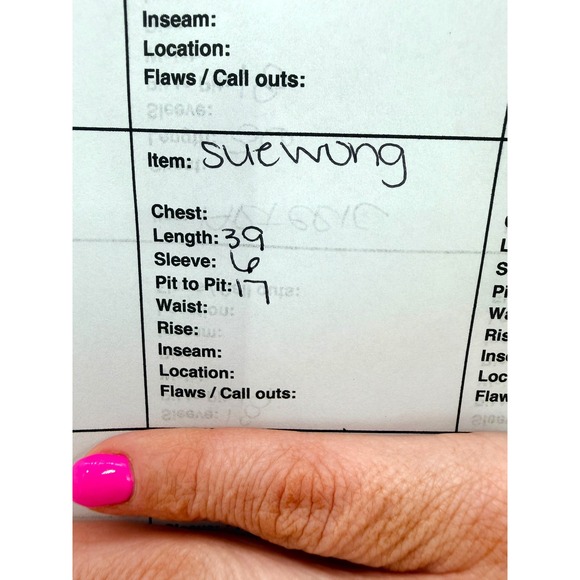 Inseam:
Location:
Flaws / Call outs:
Item: suewong
Chest:
Length: 39
Sleeve: 6
Pit to Pit: 17
Waist:
Rise:
Inseam:
Location:
Flaws / Call outs:
L
S
Pi
Wa
Ris
Inse
Loc
Flaw